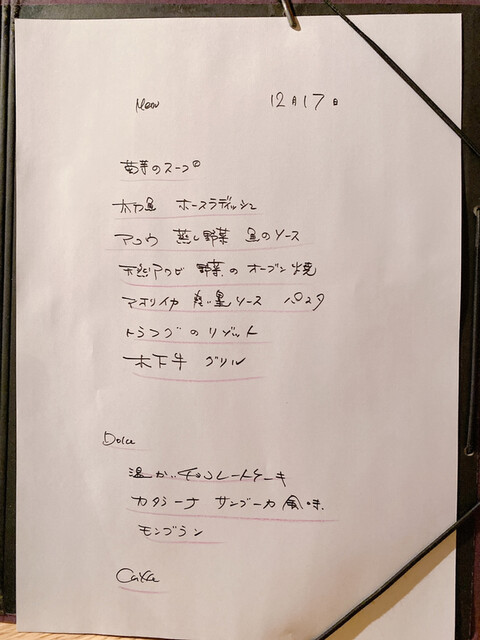 Menu 12月17日
菊芋のスープ
ホースラディッシュ
アコウ 蒸し野菜 のソース
天然アワビ 野菜のオーブン焼
アオリイカ ソース パスタ
トラフグのリゾット
木下牛 グリル
Dolce
温かいチョコレートケーキ
カタラーナ サンブーカ風味
モンブラン